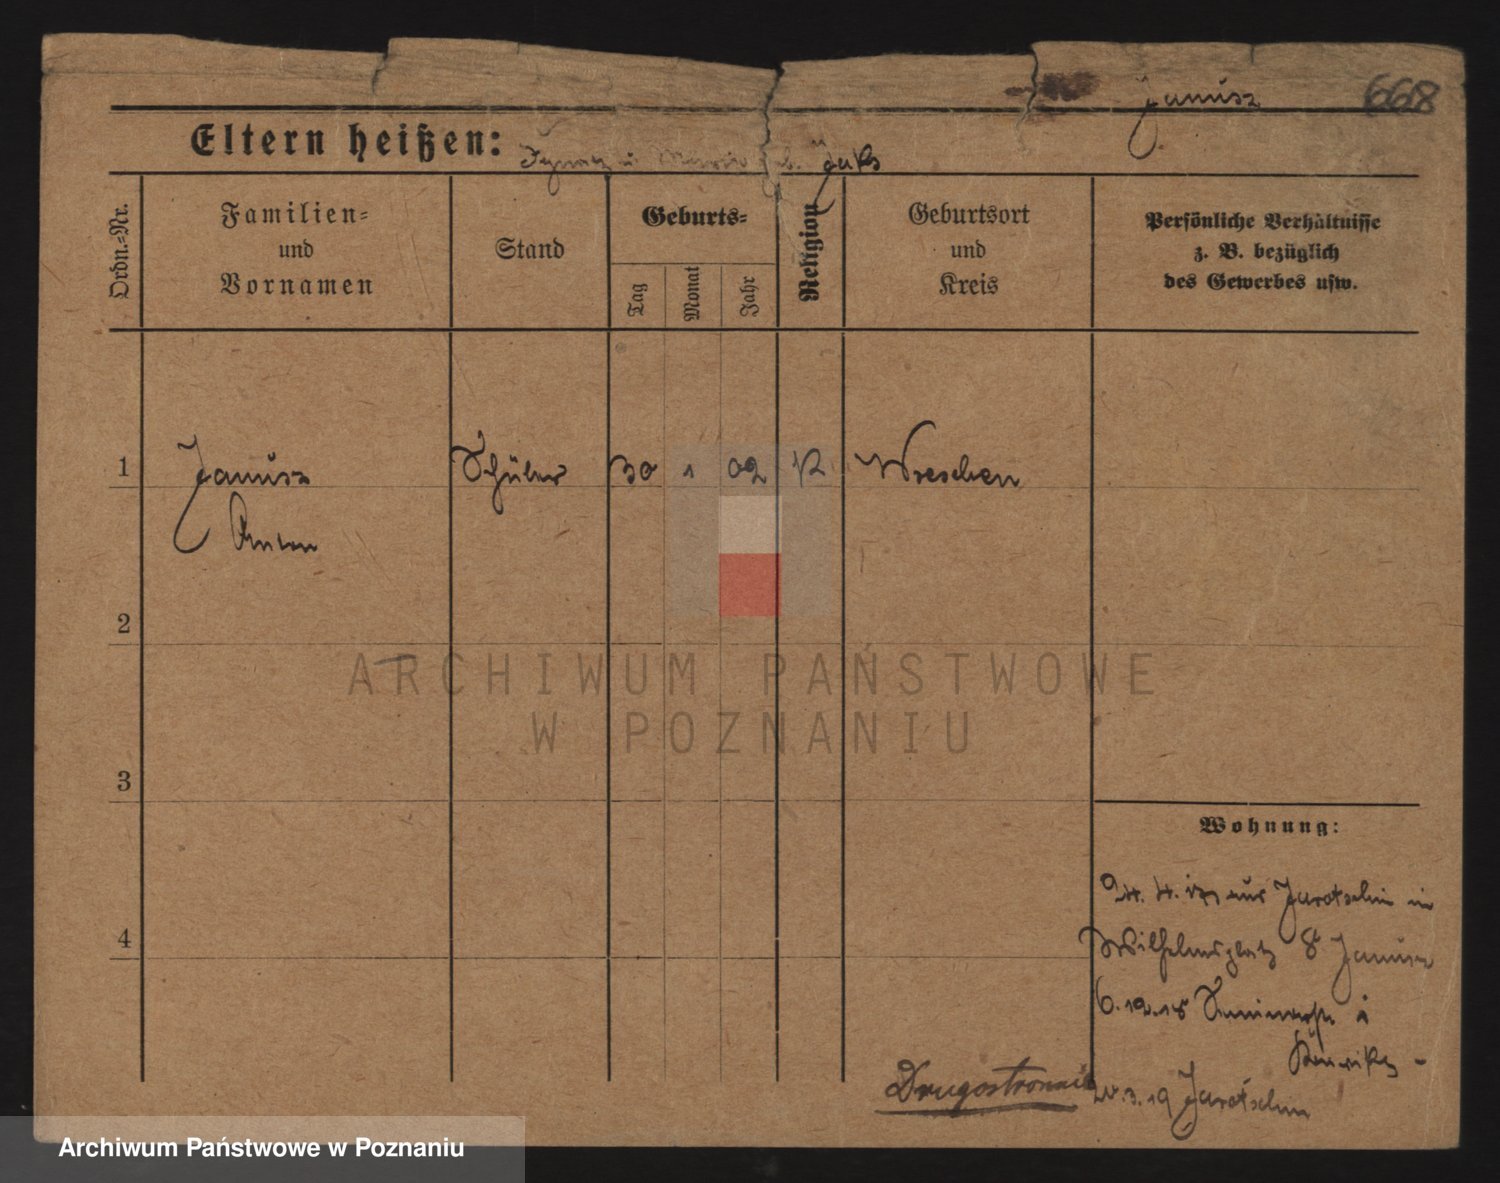 Janusz 668
Eltern heißen: Ignatz u. Maria geb. Jaks
Ordn.=Nr.
Familien=
und
Vornamen
Stand
Geburts=
Tag
Monat
Jahr
Religion
Geburtsort
und
Kreis
Persönliche Verhältnisse
z. B. bezüglich
des Gewerbes usw.
1 Janusz Schüler 30 1 02 K Wreschen
Anton
2
ARCHIWUM PAŃSTWOWE
W POZNANIU
3
Wohnung:
24. 4. aus Jarotschin in
4
Wilhelmsplatz 8 Janusz
6.12.18 Seminarstr. 1
Drugostronnie
3.19 Jarotschin
Archiwum Państwowe w Poznaniu